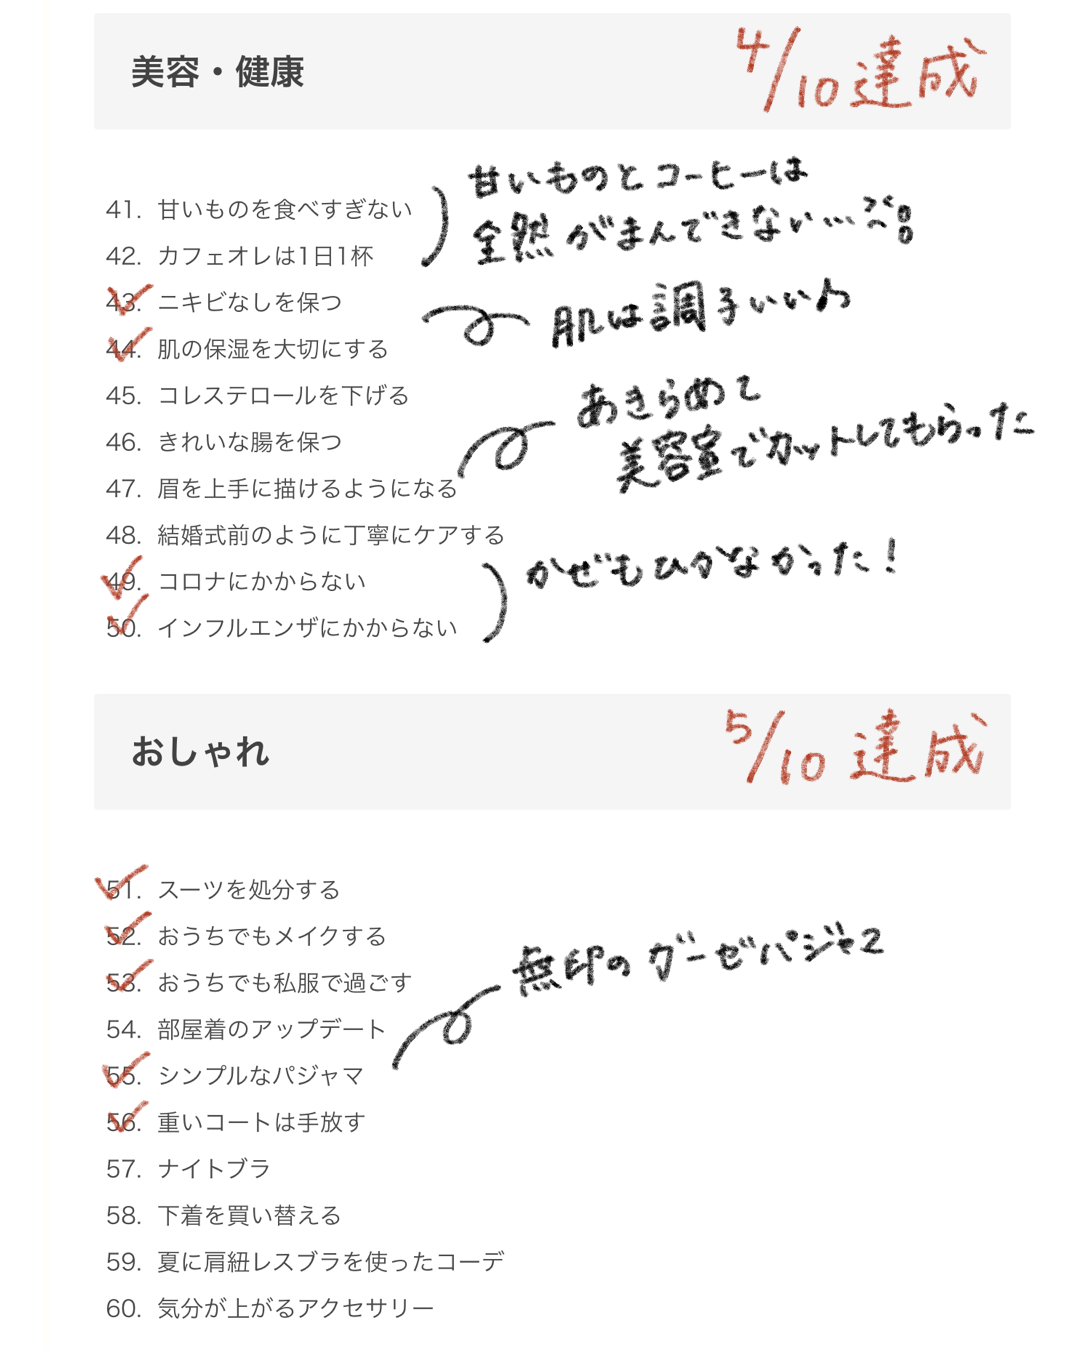 美容・健康
4/10 達成
41. 甘いものを食べすぎない
甘いものとコーヒーは
全然がまんできない…
42. カフェオレは1日1杯
43. ニキビなしを保つ
肌は調子いい♪
44. 肌の保湿を大切にする
45. コレステロールを下げる
あきらめて
美容室でカットしてもらった
46. きれいな腸を保つ
47. 眉を上手に描けるようになる
48. 結婚式前のように丁寧にケアする
49. コロナにかからない
かぜもひかなかった!
50. インフルエンザにかからない
おしゃれ
5/10 達成
51. スーツを処分する
52. おうちでもメイクする
53. おうちでも私服で過ごす
無印のガーゼパジャマ
54. 部屋着のアップデート
55. シンプルなパジャマ
56. 重いコートは手放す
57. ナイトブラ
58. 下着を買い替える
59. 夏に肩紐レスブラを使ったコーデ
60. 気分が上がるアクセサリー